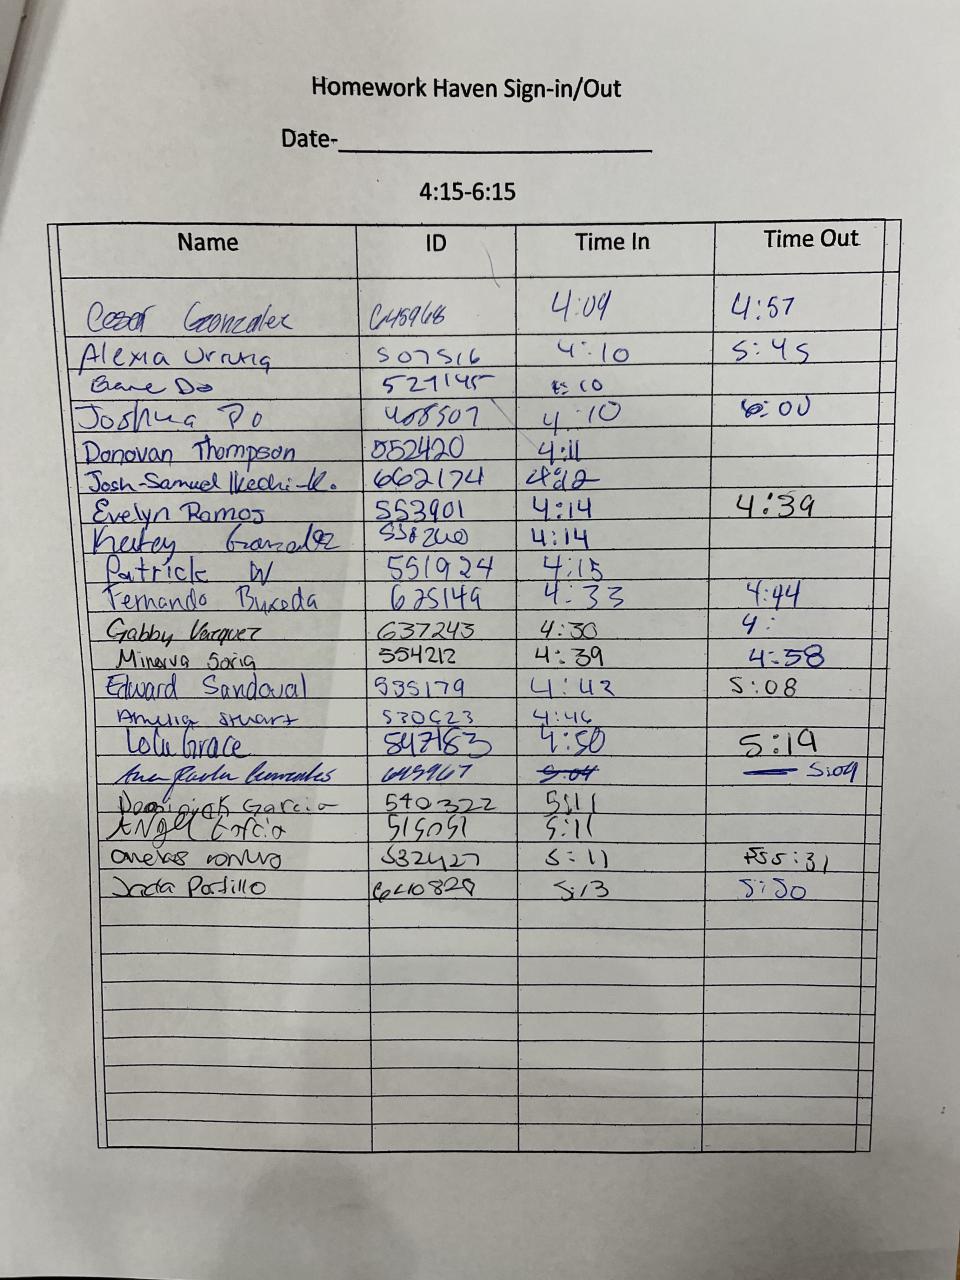 Homework Haven Sign-in/Out
Date-
4:15-6:15
Name ID Time In Time Out
Cesar Gonzalez 645968 4:09 4:57
Alexia Urrutia 507516 4:10 5:45
Do 527145 10
Joshua Po 408507 4:10 6:00
Donovan Thompson 552420 4:11
Josh-Samuel Ikechi-K. 662174
Evelyn Ramos 553901 4:14 4:39
558260 4:14
Patrick W 551924 4:15
Fernando Buxeda 625149 4:33 4:44
Gabby Vazquez 637243 4:30 4:
Minerva Soria 554212 4:39 4:58
Edward Sandoval 535179 4:42 5:08
Amelia Stuart 530623 4:46
Lolu Grace 547183 4:50 5:19
Ana Paula Gonzales 645967 5:04 5:09
Garcia 540322 5:11
Angel Garcia 515051 5:11
532427 5:11 5:31
Jada Portillo 640829 5:13 5:50